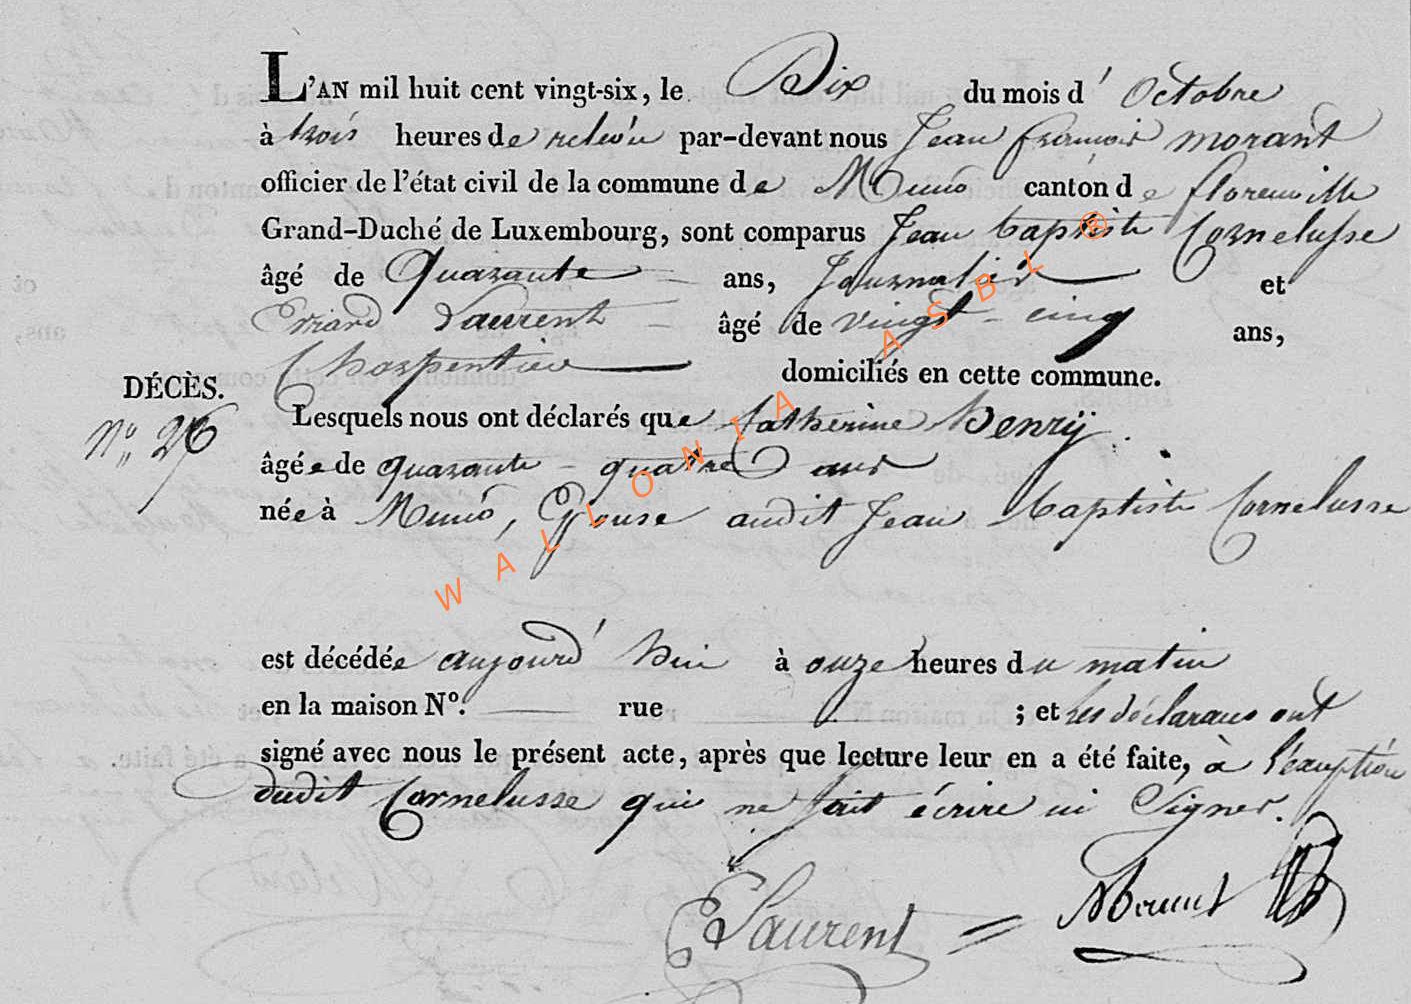 L'AN mil huit cent vingt-six, le Dix du mois d' Octobre
à trois heures de relevée par-devant nous Jean françois morant
officier de l'état civil de la commune de Muno canton de florenville
Grand-Duché de Luxembourg, sont comparus Jean baptiste Cornelusse
âgé de Quarante ans, Journalier et
Laurent âgé de vingt-cinq ans,
Charpentier domiciliés en cette commune.
DÉCÈS.
N° 26
Lesquels nous ont déclarés que Catherine henrÿ
âgée de quarante-quatre ans
née à Muno, Epouse audit Jean baptiste Cornelusse
est décédée aujourd'hui à onze heures du matin
en la maison N°. rue ; et les déclarans ont
signé avec nous le présent acte, après que lecture leur en a été faite, à l'éxception
dudit Cornelusse qui ne sait écrire ni Signer.
E Laurent Morant
WALLONIA ASBL ®